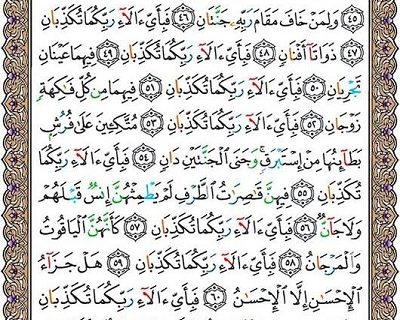 ﴿٤٥﴾ وَلِمَنْ خَافَ مَقَامَ رَبِّهِۦ جَنَّتَانِ ﴿٤٦﴾ فَبِأَيِّ ءَالَآءِ رَبِّكُمَا تُكَذِّبَانِ
﴿٤٧﴾ ذَوَاتَآ أَفْنَانٍ ﴿٤٨﴾ فَبِأَيِّ ءَالَآءِ رَبِّكُمَا تُكَذِّبَانِ ﴿٤٩﴾ فِيهِمَا عَيْنَانِ
تَجْرِيَانِ ﴿٥٠﴾ فَبِأَيِّ ءَالَآءِ رَبِّكُمَا تُكَذِّبَانِ ﴿٥١﴾ فِيهِمَا مِن كُلِّ فَٰكِهَةٍ
زَوْجَانِ ﴿٥٢﴾ فَبِأَيِّ ءَالَآءِ رَبِّكُمَا تُكَذِّبَانِ ﴿٥٣﴾ مُتَّكِـِٔينَ عَلَىٰ فُرُشٍۭ
بَطَآئِنُهَا مِنْ إِسْتَبْرَقٍ ۚ وَجَنَى ٱلْجَنَّتَيْنِ دَانٍ ﴿٥٤﴾ فَبِأَيِّ ءَالَآءِ رَبِّكُمَا
تُكَذِّبَانِ ﴿٥٥﴾ فِيهِنَّ قَٰصِرَٰتُ ٱلطَّرْفِ لَمْ يَطْمِثْهُنَّ إِنسٌ قَبْلَهُمْ
وَلَا جَآنٌّ ﴿٥٦﴾ فَبِأَيِّ ءَالَآءِ رَبِّكُمَا تُكَذِّبَانِ ﴿٥٧﴾ كَأَنَّهُنَّ ٱلْيَاقُوتُ
وَٱلْمَرْجَانُ ﴿٥٨﴾ فَبِأَيِّ ءَالَآءِ رَبِّكُمَا تُكَذِّبَانِ ﴿٥٩﴾ هَلْ جَزَآءُ
ٱلْإِحْسَٰنِ إِلَّا ٱلْإِحْسَٰنُ ﴿٦٠﴾ فَبِأَيِّ ءَالَآءِ رَبِّكُمَا تُكَذِّبَانِ